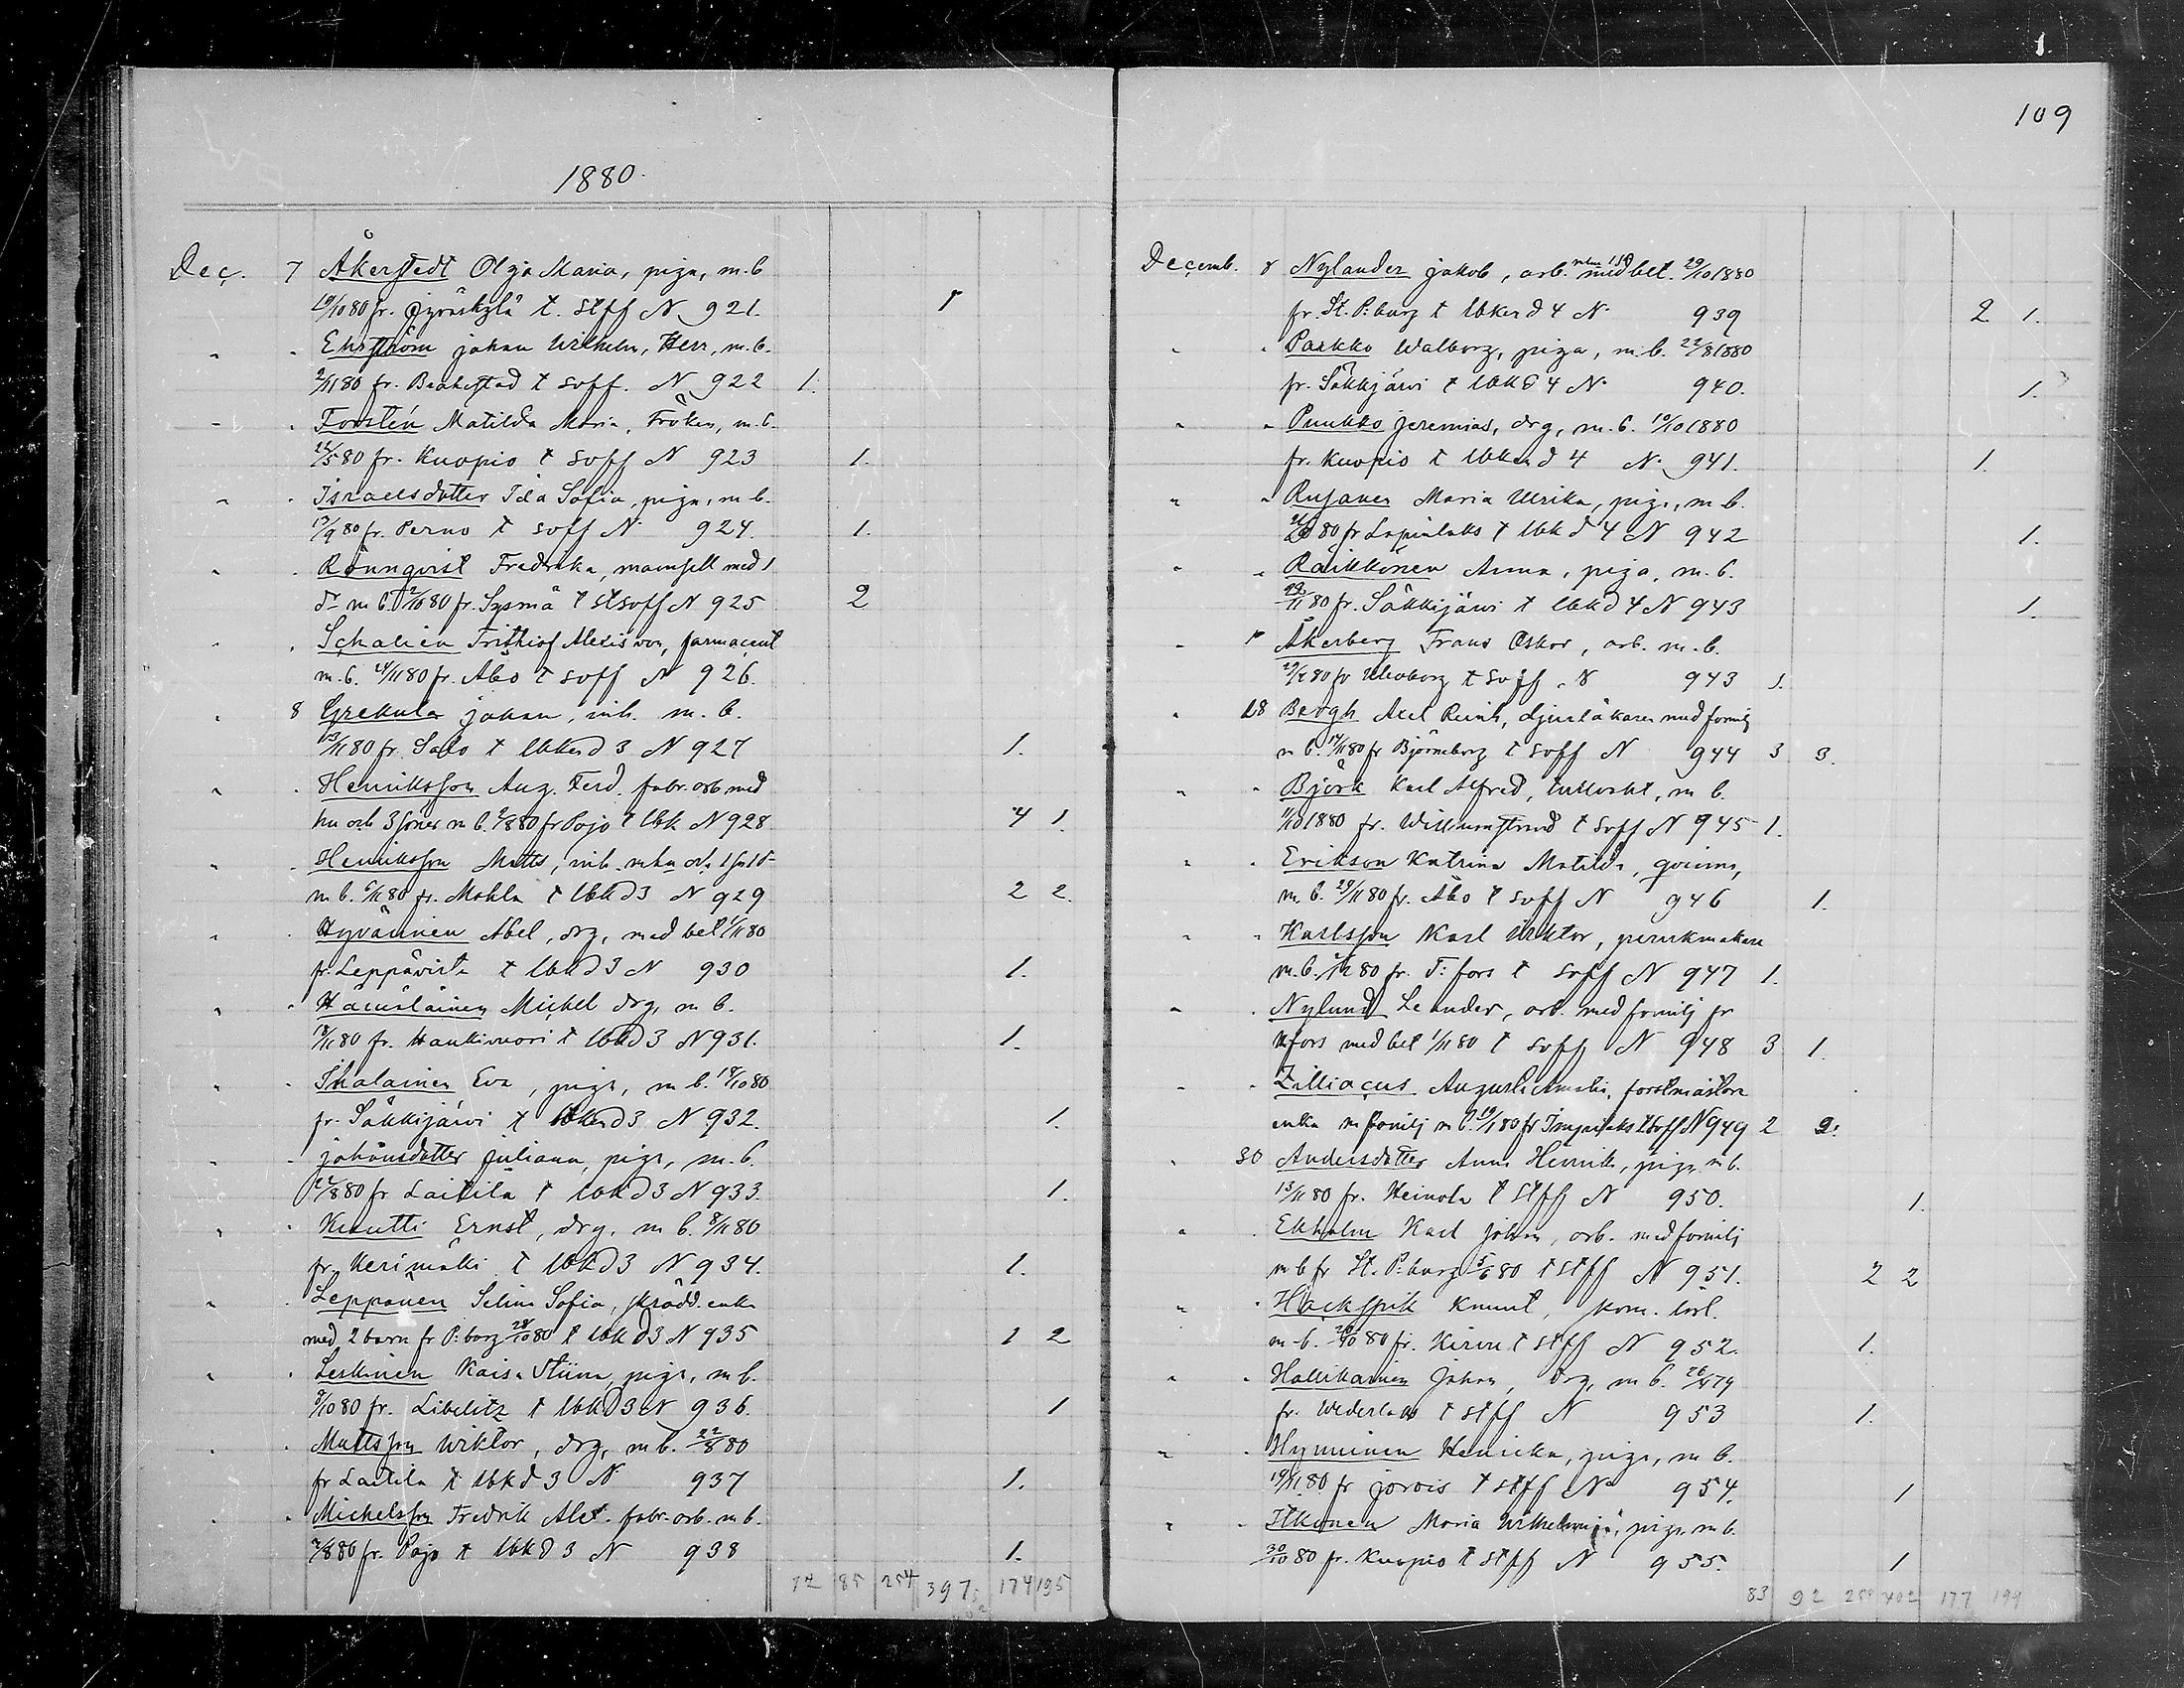 109
1880.
Dec. 7 Åkerstedt Olga Maria, piga, m. b
19/10 80 fr. Jyväskylä t. stff N 921. 1
" " Ehrström Johan Wilhelm, Herr, m. b.
2/11 80 fr. Brahestad t soff. N 922 1.
" " Forstén Matilda Maria, Fröken, m. b.
/5 80 fr. Kuopio t soff N 923 1.
" " Israelsdotter Ida Sofia, piga, m b.
13/9 80 fr. Perno t soff N 924. 1.
" " Rönnqvist Fredrika, mamsell med 1
dr m b. 2/10 80 fr. Sysmä t stsoff N 925 2
" " Schalien Frithiof Alexis von, farmaceut
m. b. 24/11 80 fr. Åbo t soff N 926.
" 8 Grekula Johan, inh. m. b.
13/11 80 fr. Salo t lbken d 3 N 927 1.
" " Henriksson Aug. Ferd. fabr. arb med
hu och 3 söner m b. 2/8 80 fr Pojo t lbk N 928. 4 1.
" " Henriksson Matts, inh. m hu och 1 s 1 d
m b. 6/11 80 fr. Mohla t lbk d 3 N 929 2 2.
" " Hyvärinen Abel, drg, med bet 1/11 80
fr. Leppävirta t lbk d 3 N 930 1.
" " Hämäläinen Michel drg, m b.
18/11 80 fr. Haukivuori t lbk d 3 N 931. 1.
" " Ihalainen Eva, piga, m b. 18/10 80
fr. Säkkijärvi t lbken d 3 N 932. 1.
" " Johansdotter Juliana, piga, m. b.
22/8 80 fr Laitila t lbk d 3 N 933. 1.
" " Kuutti Ernst, drg, m b. 8/11 80
fr. Kerimäki t lbk d 3 N 934. 1.
" " Leppänen Selma Sofia, skrädd. enka
med 2 barn fr P:borg 28/10 80 t lbk d 3 N 935 1 2
" " Leskinen Kaisa Stiina, piga, m b.
9/10 80 fr. Libelitz t lbk d 3 N 936. 1
" " Mattsson Wiktor, drg, m b. 22/8 80
fr Laitila t lbk d 3 N 937 1.
" " Michelsson Fredrik Alex. fabr. arb. m b.
2/8 80 fr. Pojo t lbk d 3 N 938 1.
85 254 397 174 195
Decemb. 8 Nylander Jakob, arb. m hu 1 s med bet. 29/10 1880
fr. St. P:burg t lbken d 4 N. 939 2 1.
" " Parkko Walborg, piga, m. b. 22/8 1880
fr. Säkkjärvi t lbk d 4 N. 940. 1.
" " Puukko Jeremias, drg, m. b. 10/10 1880
fr. Kuopio t lbken d 4 N. 941. 1.
" " Rusanen Maria Ulrika, piga, m b.
80 fr Lapinlaks t lbk d 4 N 942 1.
" " Räikkönen Anna, piga, m. b.
29/11 80 fr. Säkkijärvi t lbk d 4 N 943 1.
" " Åkerberg Frans Oskar, arb. m. b.
80 fr Uleåborg t soff. N 943 1.
" 28 Bergh Axel Reinh, djurläkaren med familj
m b. 17/11 80 fr Björneborg t soff N 944 3 3.
" " Björk Karl Alfred, tullvakt, m b.
11/10 1880 fr. Willmanstrand t soff N 945 1.
" " Erikson Katrina Matilda, qvinna,
m. b. 29/11 80 fr. Åbo t soff N 946 1.
" " Karlsson Karl Wiktor, perukmakare
m. b. 80 fr. T:fors t soff N 947 1.
" " Nylund Leander, arb. med familj fr
Hfors med bet 1/11 80 t soff N 948 3 1.
" " Zilliacus Augusta Amalia, forstmästare
enka m familj m b. 19/11 80 fr Impilaks t soff N 949 2 2.
" 30 Andersdotter Anna Henrika, piga, m b.
13/11 80 fr. Heinola t stff N 950. 1.
" " Ekholm Karl Johan, arb. med familj
m b fr St. P:burg 5/6 80 t stff N 951. 2 2
" " Hackspik Knuut, korn. lärl.
m. b. /10 80 fr. Kirvu t stff N 952. 1.
" " Hallikainen Johan, drg, m b. 26/4 79
fr. Wederlaks t stff N 953 1.
" " Hynninen Henrika, piga, m b.
19/11 80 fr Jorois t stff N 954. 1
" " Itkonen Maria Wilhelmina, piga m b.
30/10 80 fr. Kuopio t stff N 955. 1
83 92 402 177 199